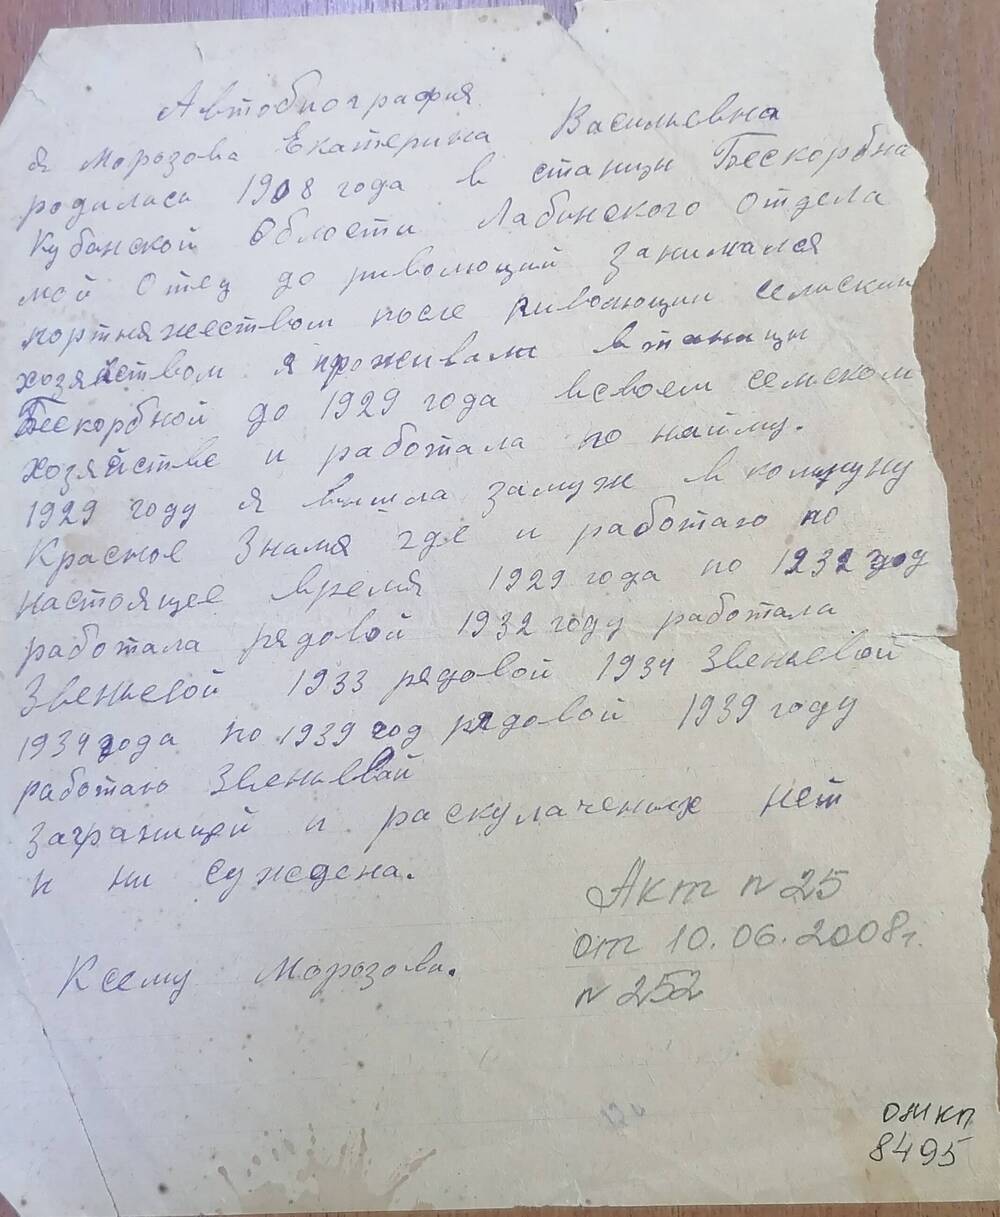 Автобиография
я Морозова Екатерина Васильевна
родилась 1908 года в станицы Бескорбна
Кубанской Облости Лабинского Отдела
мой Отец до риволюций занимался
портняжеством после риволюции селиским
хозяйством я проживали в таницы
Бескорбной до 1929 года всвоем селиском
хозяйстве и работала по найму.
1929 году я вышла замуж в коммуну
Красное Знамя где и работаю по
настоящее время 1929 года по 1932 год
работала рядовой 1932 году работала
Звеньевой 1933 рядовой 1934 Звеньевой
1934 года по 1939 год рядовой 1939 году
работаю звеньевой
заграницей и раскулаченых нет
и ни суждена.
К сему Морозова.
Акт n 25
от 10.06.2008г.
n 252
ОМ КП
8495